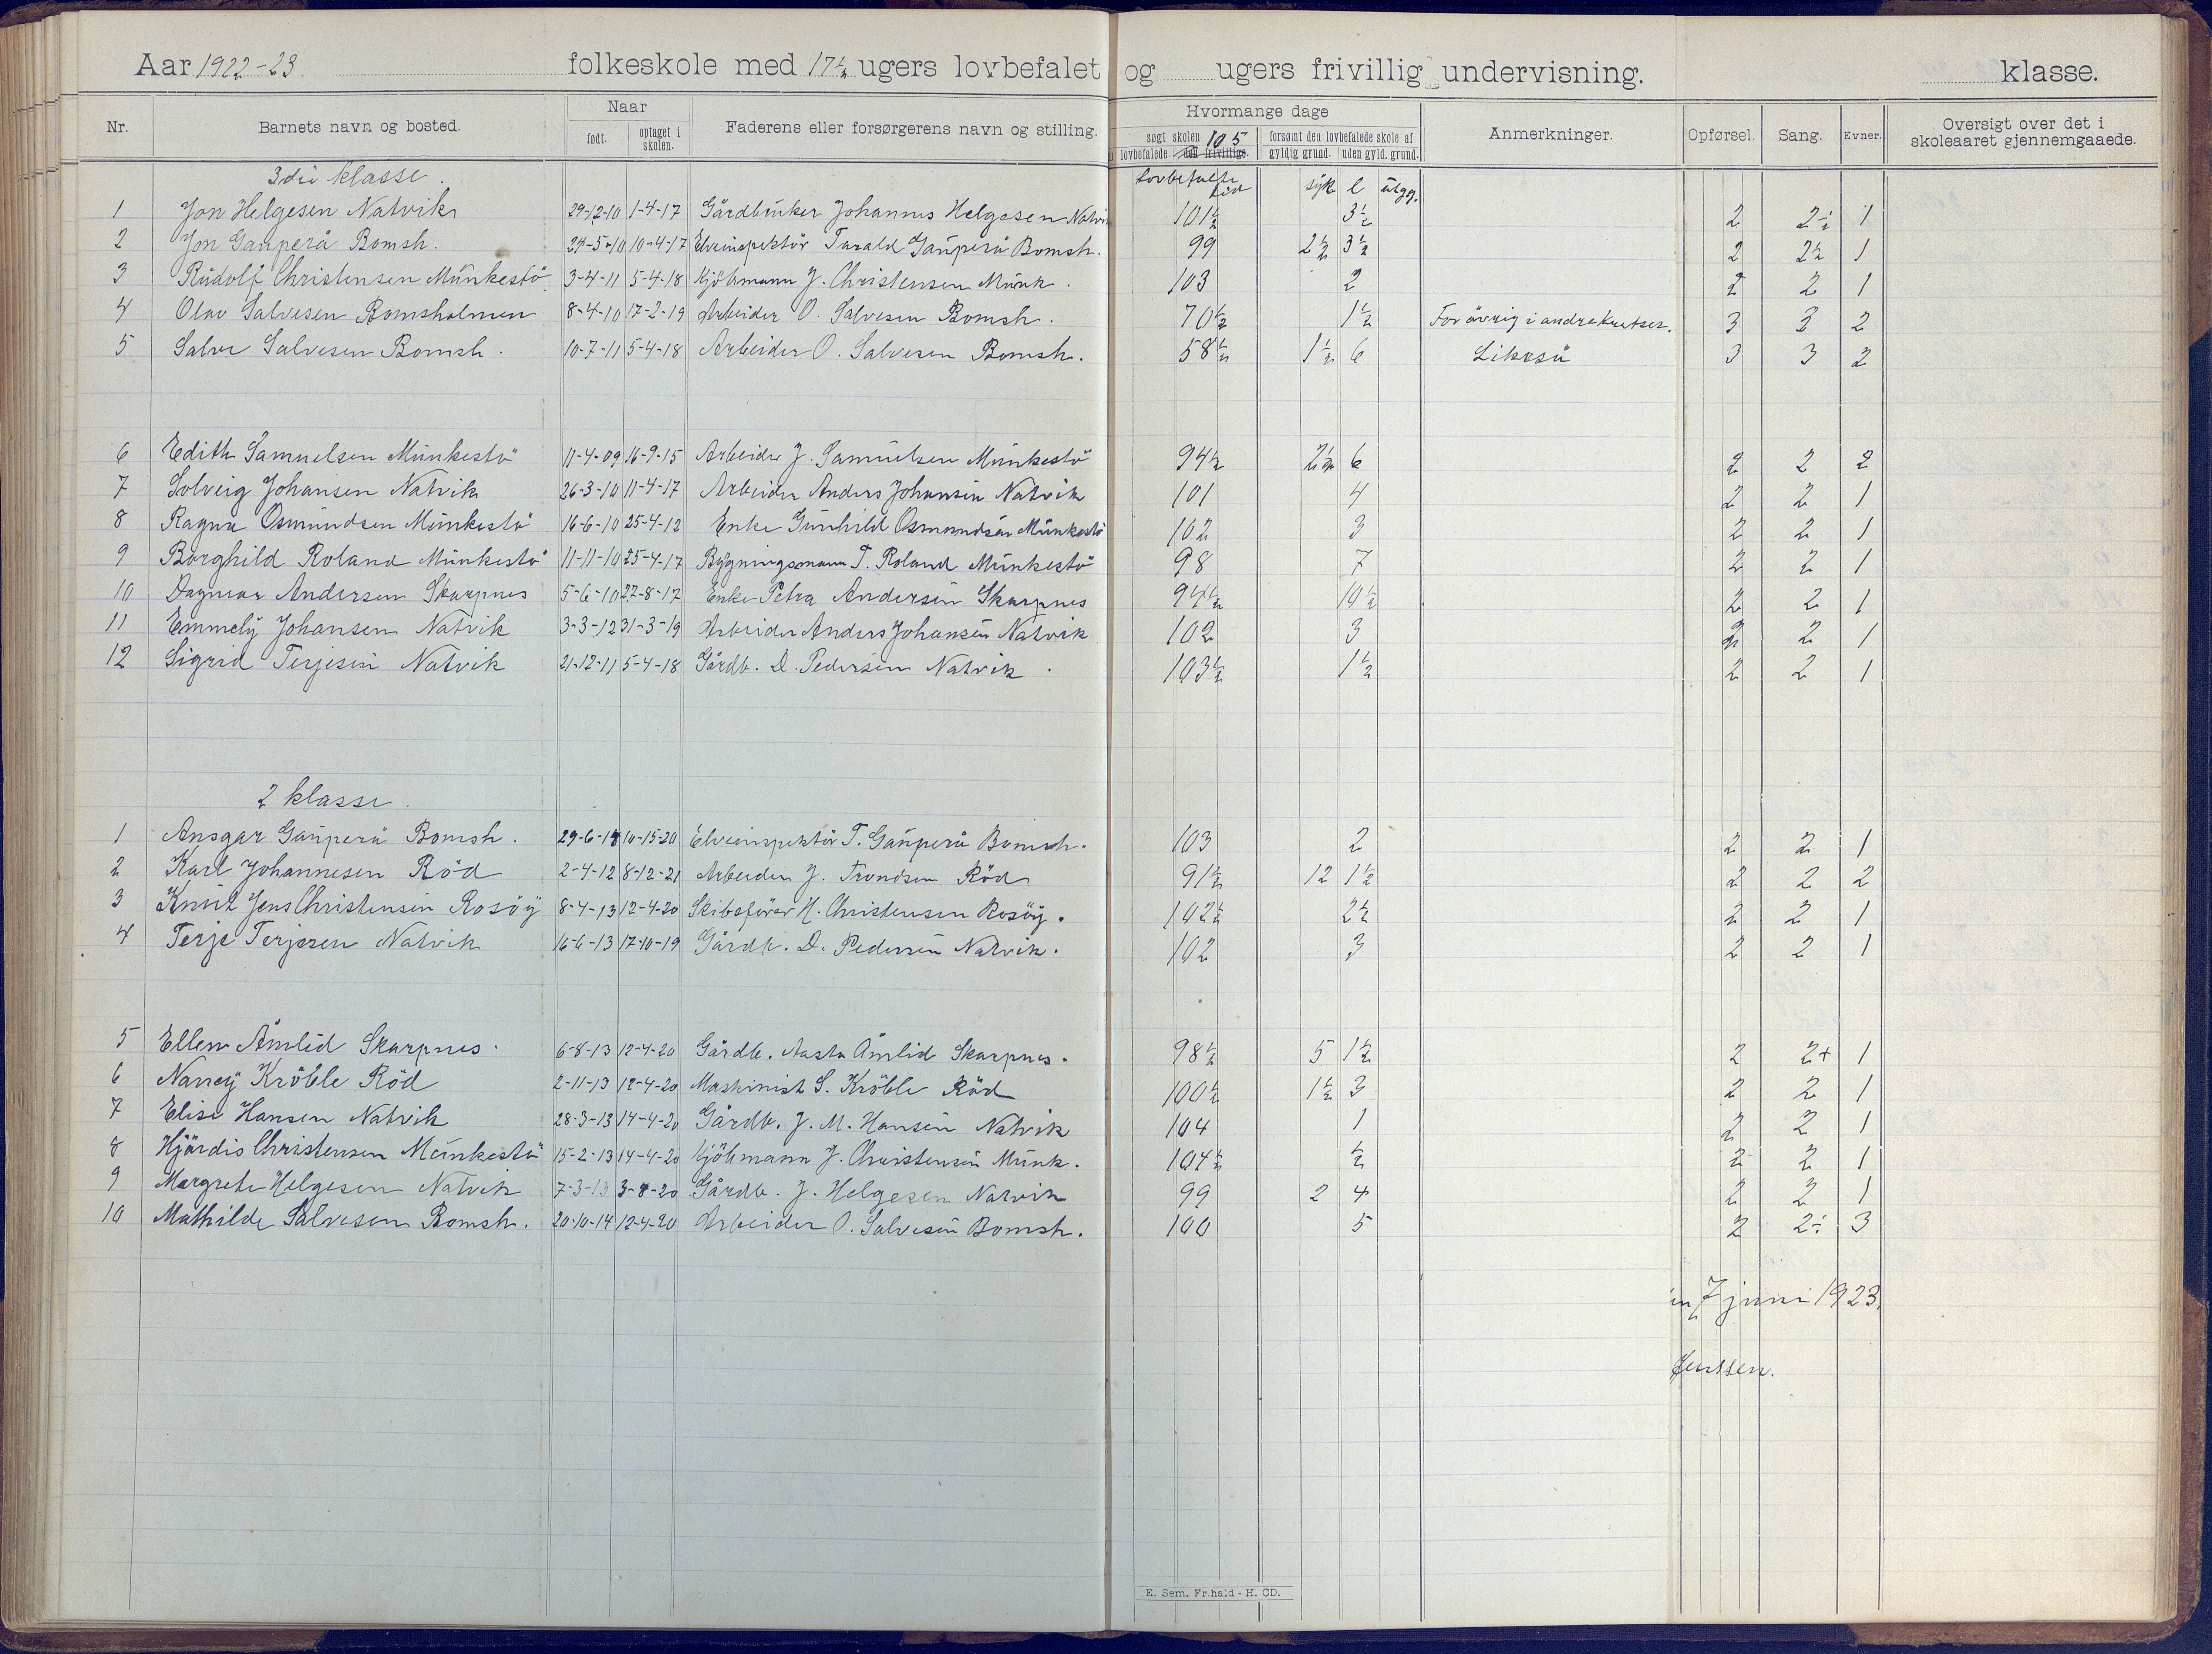 Aar 1922-23. folkeskole med 17½ ugers lovbefalet og ugers frivillig undervisning. klasse.
Nr. Barnets navn og bosted. Naar født. optaget i skolen. Faderens eller forsørgerens navn og stilling. Hvormange dage søgt skolen 105 lovbefalede den frivillige. forsømt den lovbefalede skole af gyldig grund. uden gyld. grund. Anmerkninger. Opførsel. Sang. Evner. Oversigt over det i skoleaaret gjennemgaaede.
3die klasse. Lovbefalte tid syk l utgg.
1 Jon Helgesen Natvik 29-12-10 1-4-17 Gårdbruker Johannes Helgesen Natvik 101½ 3½ 2 2÷ 1
2 Jon Gauperå Bomsh. 24-5-10 10-4-17 Elveinspektör Tarald Gauperå Bomsh. 99 2½ 3½ 2 2½ 1
3 Rudolf Christensen Munkestö 3-4-11 5-4-18 Kjöbmann J. Christensen Munk. 103 2 2 2 1
4 Olav Salvesen Bomsholmen 8-4-10 17-2-19 Arbeider O. Salvesen Bomsh. 70½ 1½ For övrig i andre kretser. 3 3 2
5 Salve Salvesen Bomsh. 10-7-11 5-4-18 Arbeider O. Salvesen Bomsh. 58½ 1½ 6 Likeså 3 3 2
6 Edith Samuelsen Munkestö 11-4-09 16-9-15 Arbeider J. Samuelsen Munkestö 94½ 2½ 6 2 2 2
7 Solveig Johansen Natvik 26-3-10 11-4-17 Arbeider Anders Johansen Natvik 101 4 2 2 1
8 Ragna Osmundsen Munkestö 16-6-10 25-4-12 Enke Gunhild Osmundsen Munkestö 102 3 2 2 1
9 Borghild Roland Munkestö 11-11-10 25-4-17 Bygningsmann T. Roland Munkestö 98 7 2 2 1
10 Dagmar Andersen Skarpnes 5-6-10 22-8-17 Enke Petra Andersen Skarpnes 94½ 10½ 2 2 1
11 Emmely Johansen Natvik 3-3-12 31-3-19 Arbeider Anders Johansen Natvik 102 3 2 2 1
12 Sigrid Terjesen Natvik 21-12-11 5-4-18 Gårdb. D. Pedersen Natvik. 103½ 1½ 2 2 1
2 klasse.
1 Ansgar Gauperå Bomsh. 29-6-14 10-15-20 Elveinspektör T. Gauperå Bomsh. 103 2 2 2 1
2 Karl Johannesen Röd 2-4-12 8-12-21 Arbeider J. Trondsen Röd 91½ 12 1½ 2 2 2
3 Knut Jens Christensen Rosöy 8-4-13 12-4-20 Skibsförer H. Christensen Rosöy. 102½ 2½ 2 2 1
4 Terje Terjesen Natvik 16-6-13 17-10-19 Gårdb. D. Pedersen Natvik. 102 3 2 2 1
5 Ellen Åmlid Skarpnes. 6-8-13 12-4-20 Gårdb. Aasta Åmlid Skarpnes. 98½ 5 1½ 2 2+ 1
6 Nancy Kröble Röd 2-11-13 12-4-20 Maskinist S. Kröble Röd 100½ 1½ 3 2 2 1
7 Elise Hansen Natvik 28-3-13 14-4-20 Gårdb. J. M. Hansen Natvik 104 1 2 2 1
8 Hjördis Christensen Munkestö 15-2-13 14-4-20 Kjöbmann J. Christensen Munk. 104½ ½ 2 2 1
9 Margrete Helgesen Natvik 7-3-13 3-8-20 Gårdb. J. Helgesen Natvik 99 2 4 2 2 1
10 Mathilde Salvesen Bomsh. 20-10-14 12-4-20 Arbeider O. Salvesen Bomsh. 100 5 2 2÷ 3
7 juni 1923.
Jenssen.
E. Sem. Fr.hald - H. CD.